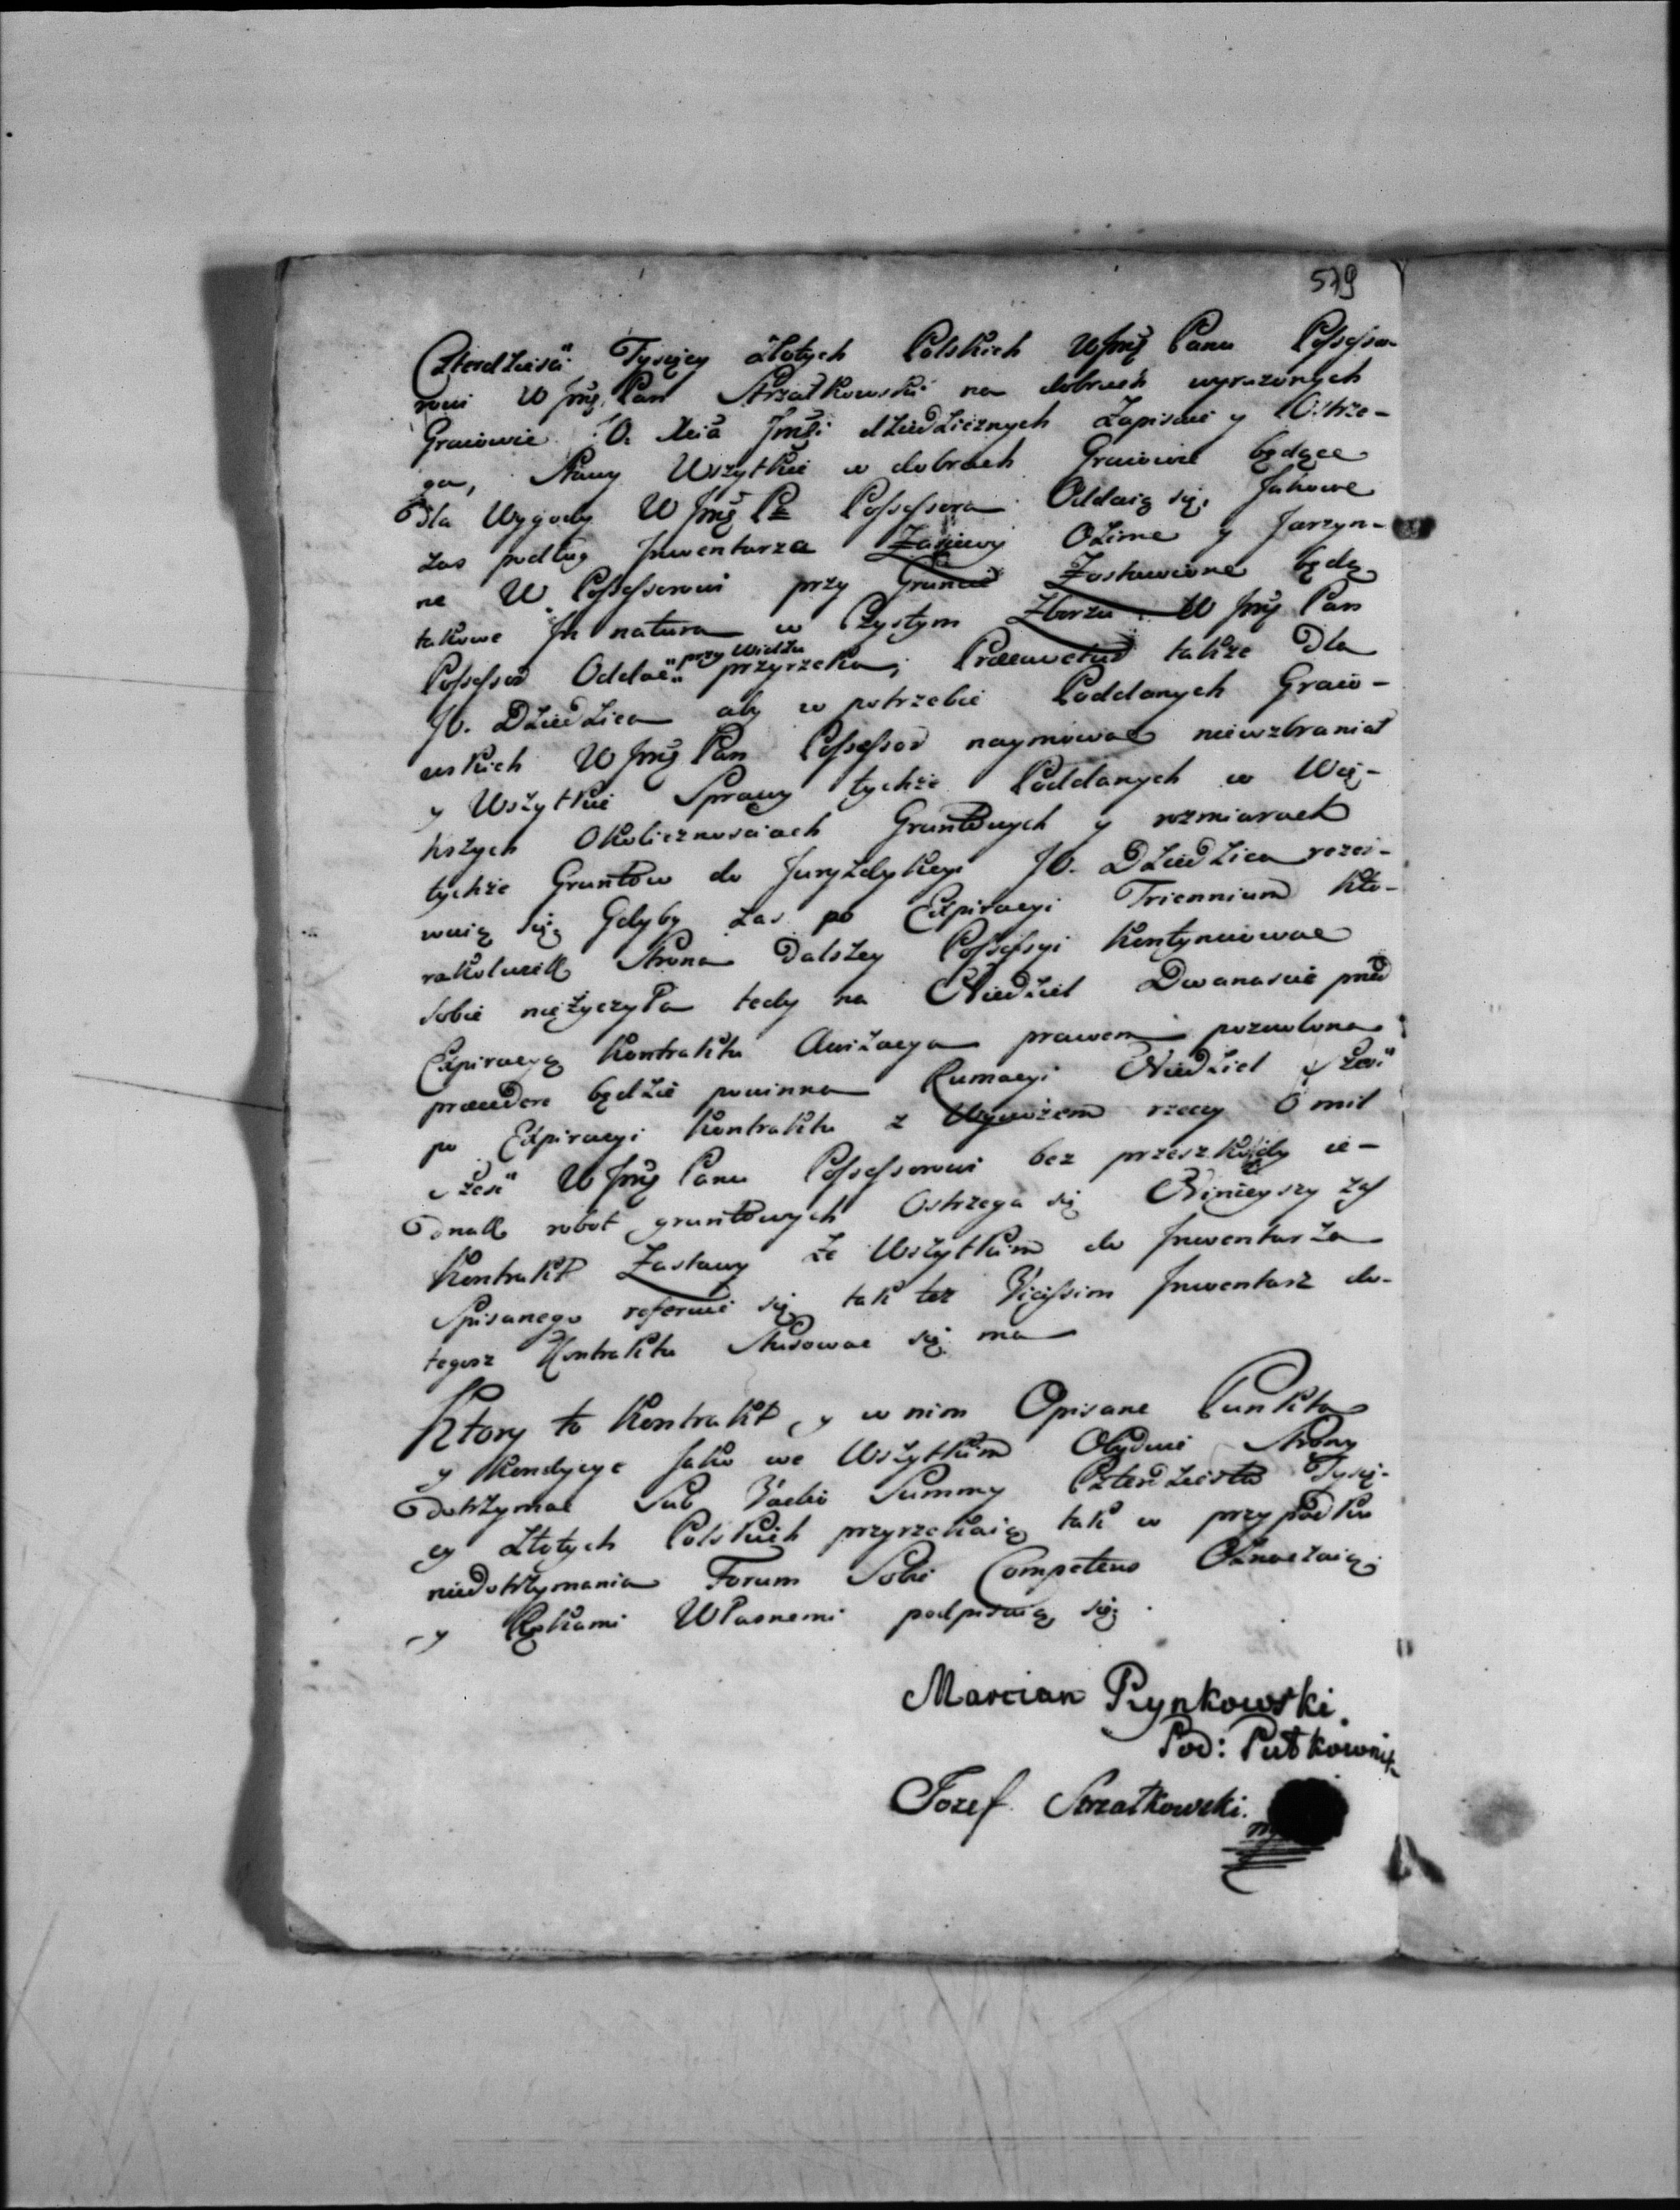 579
Czterdzieści Tysięcy Złotych Polskich WJmę Panu Possesso-
rowi WJmę. Pan Strzałkowski na dobrach wyrazonych
Graiowie JO. Xcia Jmści dziedzicznych Zapisuie y Ostrze-
ga, Stawy Wszytkie w dobrach Graiowie będące
Dla Wygody W Jmę P. Possessora Oddaią się, Jakowe
Zas podług Jnwentarza Zasiewy Ozime y Jarzyn-
ne W. Possessorowi przy Gruncie Zostawione będą
takowe Jn natura w Czystym Zborzu W Jmę Pan
przy Widzu
Possessor Oddać przyrzeka, Praecavetur takze Dla
JO. Dziedzica aby w potrzebie Poddanych Graio-
wskich W Jmę Pan Possessor naymować niewzbraniał
y Wszytkie Sprawy tychże Poddanych w Wię-
kszych Okolicznosciach Gruntowych y rozmiarach
tychże Gruntow do Juryzdykcyi JO. Dziedzica rezer-
wuią się, Gdyby Zas po Expiracyi Triennium kto-
rakolwiek Strona Dalszey Possessyi kontynuować
sobie nieżyczyła tedy na Niedziel Dwanascie przed
Expiracyą kontraktu Awizacya prawem pozwolona
praecedere będzie powinna Rumacyi Niedziel sześć
po Expiracyi kontraktu z Wywozem rzeczy o mil
sześć W Jmę Panu Possessorowi bez przeszkody ie-
Dnak robot gruntowych Ostrzega się Ninieyszy zas
Kontrakt Zastawy Ze Wszytkim do Jnwentarza
Spisanego referuie się, tak też Vicissim Jnwentarz do-
tegosz Kontraktu Stusować się ma
Ktory to Kontrakt, y w nim Opisane Punkta
y Kondycye Jako we Wszytkim Obydwie Strony
Dotrzymać Sub Vadio Summy Czterdziestu Tysię-
cy Złotych Polskich przyrzekaią tak w przypadku
niedotrzymania Forum Sobie Competens Oznaczaią,
y Rękami Własnemi podpisuią się.
Marcian Rynkowski.
Pod: Pułkownik
Jozef Strzałkowski.